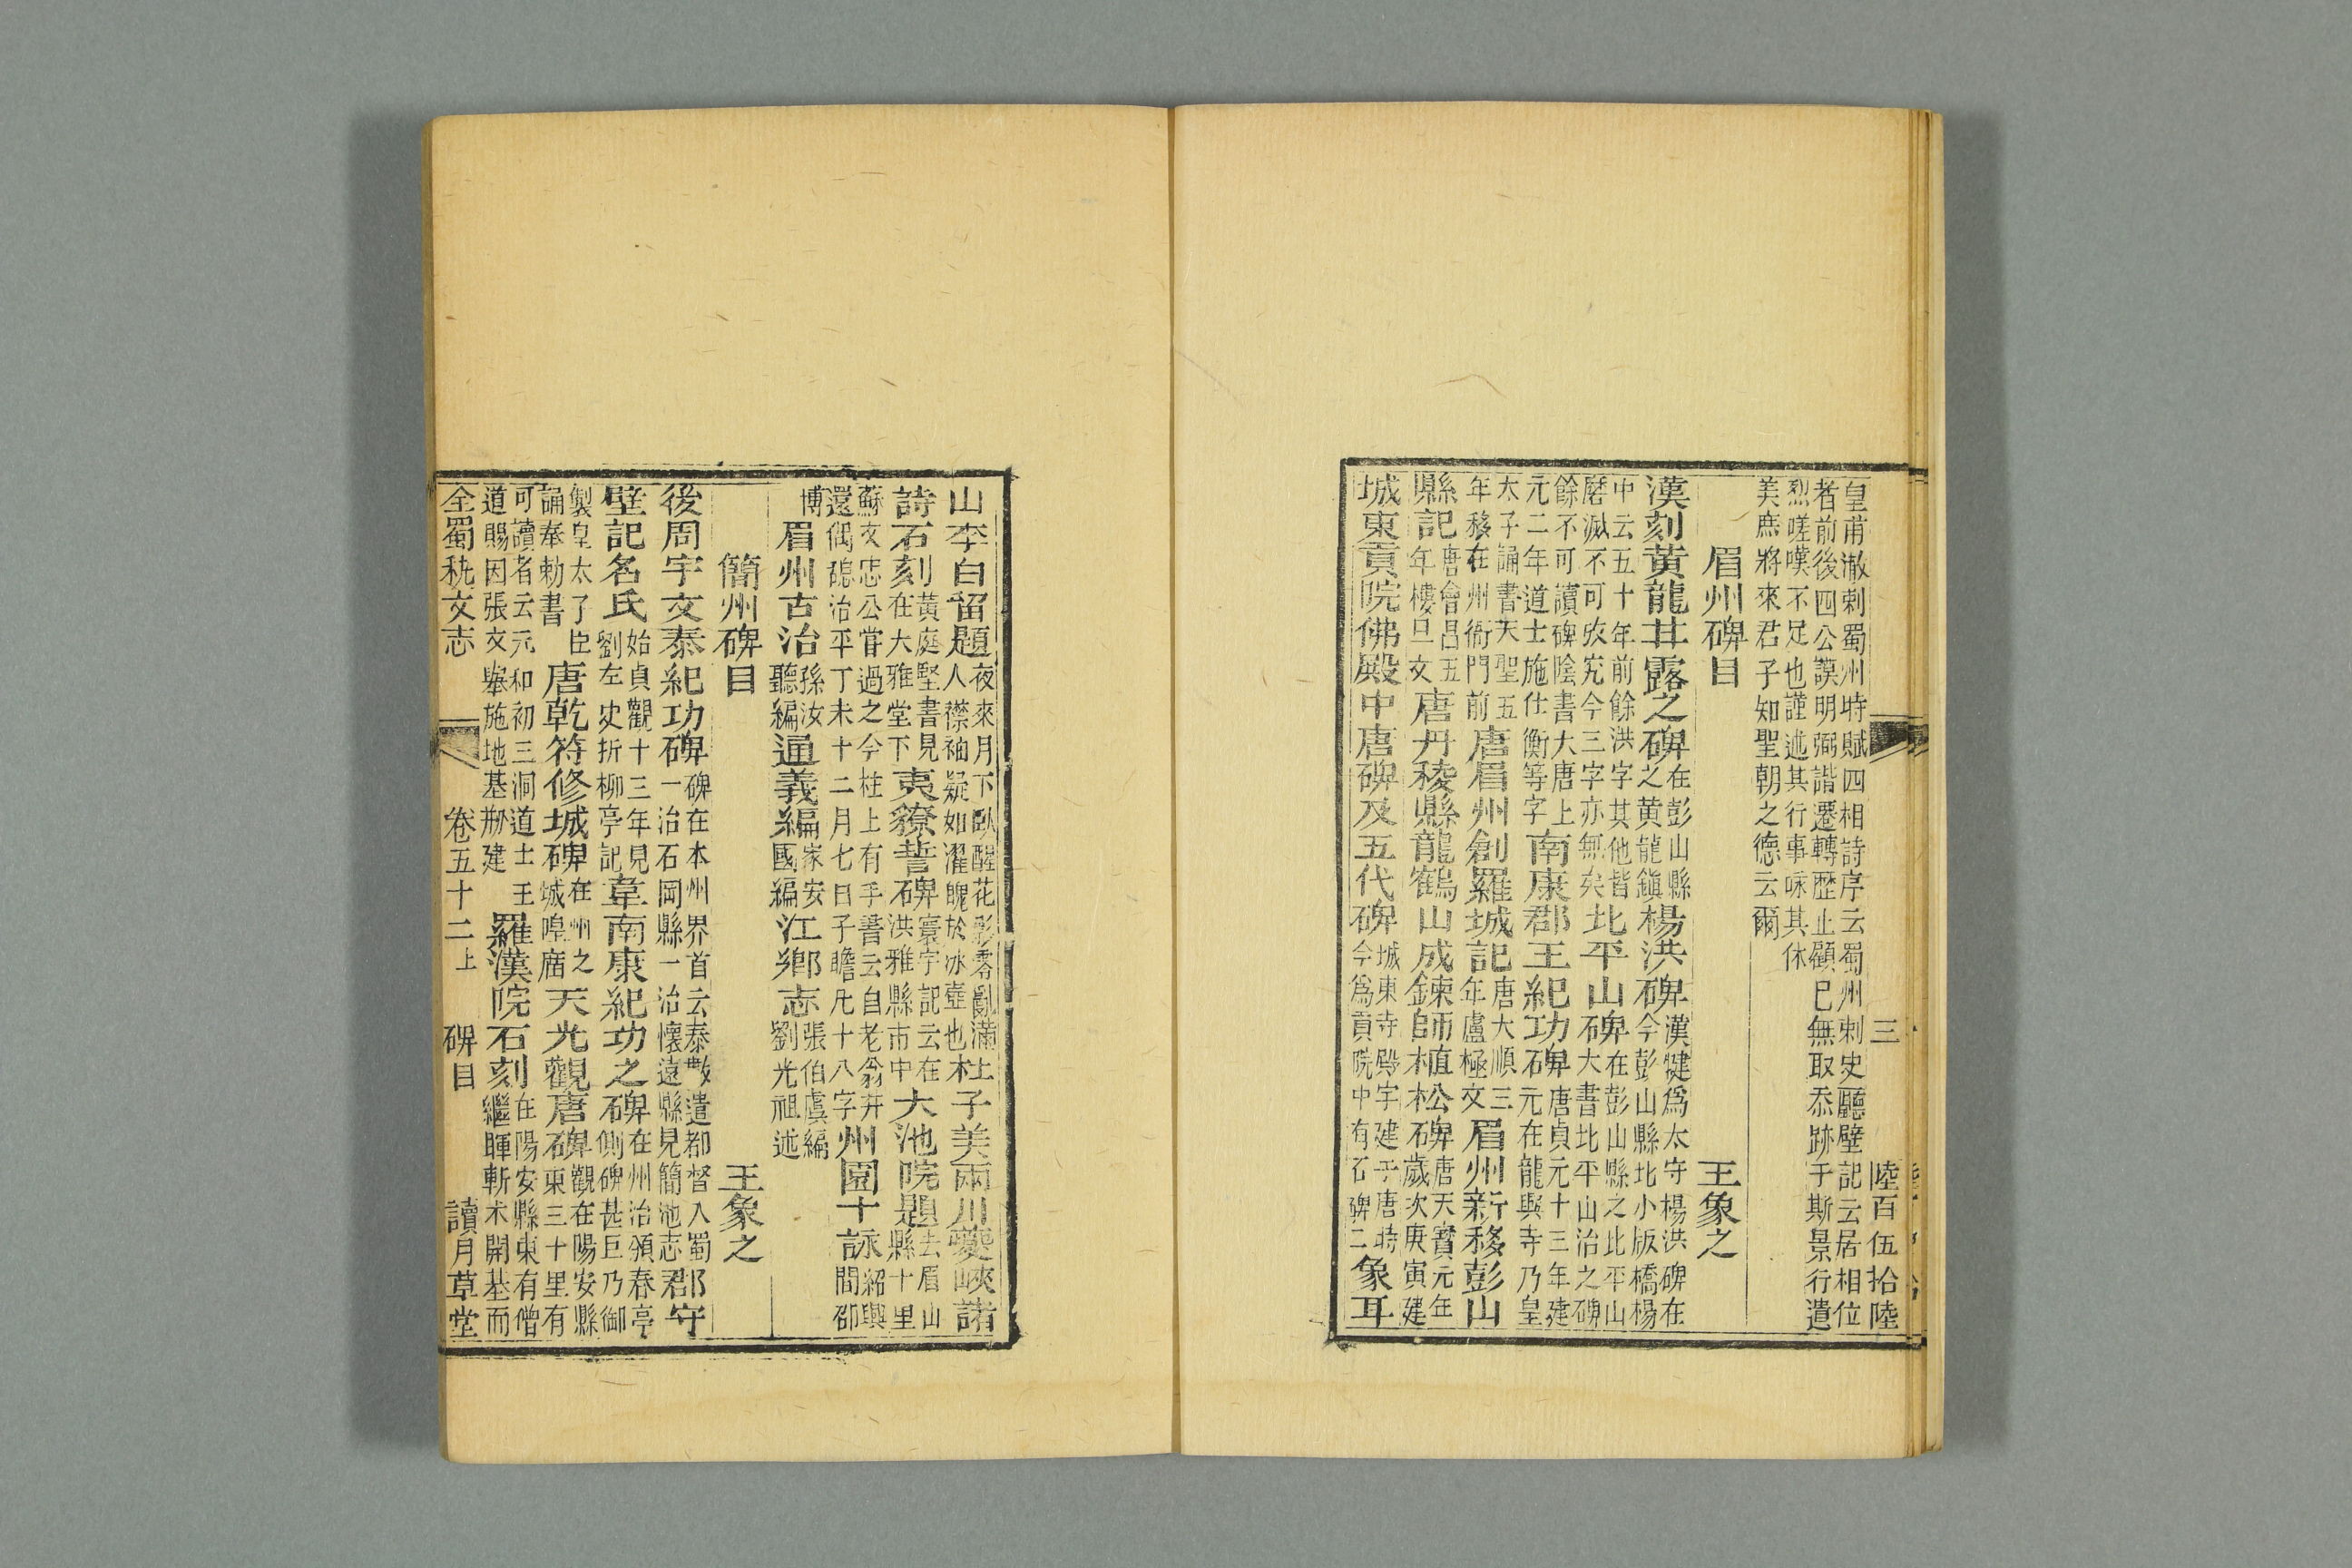 三　陸百伍拾陸
皇甫澈刺蜀州時賦四相詩序云蜀州刺史廳壁記云居相位
者前後四公謨明弼諧遷轉歷止顧已無取忝跡于斯景行遺
烈嗟嘆不足也謹述其行事咏其休
美庶將來君子知聖朝之德云爾
眉州碑目　王象之
漢刻黃龍甘露之碑在彭山縣
之黃龍鎭楊洪碑漢犍爲太守楊洪碑在
今彭山縣北小版橋楊
中云五十年前餘洪字其他皆
磨滅不可攷究今三字亦無矣北平山碑在彭山縣之北平山
大書北平山治之碑
餘不可讀碑陰書大唐上
元二年道士施仕衡等字南康郡王紀功碑唐貞元十三年建
元在龍興寺乃皇
太子誦書天聖五
年移在州衙門前唐眉州創羅城記唐大順三
年盧極文眉州新移彭山
縣記唐會昌五
年樓旦文唐丹稜縣龍鶴山成鍊師植松碑唐天寶元年
歲次庚寅建
城東貢院佛殿中唐碑及五代碑城東寺殿宇建于唐時
今爲貢院中有石碑二象耳
山李白留題夜來月下臥醒花影零亂滿
人襟袖疑如濯魄於冰壺也杜子美兩川夔峽諸
詩石刻黃庭堅書見
在大雅堂下夷獠誓碑寰宇記云在
洪雅縣市中大池院題去眉山
縣十里
蘇文忠公嘗過之今柱上有手書云自老翁井
還偶憩治平丁未十二月七日子瞻凡十八字州園十詠紹興
間邵
博眉州古治孫汝
聽編通義編家安
國編江鄉志張伯虞編
劉光祖述
簡州碑目　王象之
後周宇文泰紀功碑碑在本州界首云泰數遣都督入蜀
一治石岡縣一治懷遠縣見簡池志郡守
壁記名氏始貞觀十三年見
劉左史折柳亭記韋南康紀功之碑在州治頒春亭
側碑甚巨乃御
製皇太子臣
誦奉勅書唐乾符修城碑在州之
城隍廟天光觀唐碑觀在陽安縣
東三十里有
可讀者云元和初三洞道士王
道賜因張文舉施地基剏建羅漢院石刻在陽安縣東有僧
繼暉斬木開基而
全蜀秇文志　卷五十二上　碑目　讀月草堂